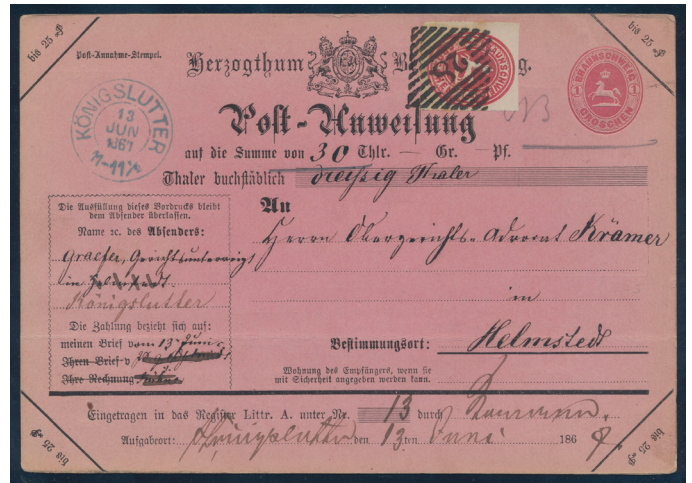 bis 25 ₰
bis 25 ₰
Post-Annahme-Stempel.
Herzogthum B g.
BRAUNSCHWEIG
1 1
GROSCHEN
KÖNIGSLUTTER
13
JUN
1867
Post-Anweisung
auf die Summe von 30 Thlr. — Gr. — Pf.
Thaler buchstäblich dreißig Thaler
Die Ausfüllung dieses Vordrucks bleibt
dem Absender überlassen.
Name ꝛc. des Absenders:
Graefer, Gerichtsuntervoigt
in Helmstedt.
Königslutter
Die Zahlung bezieht sich auf:
meinen Brief vom 13. Juni
Ihren Brief v
Ihre Rechnung
An
Herrn Obergerichts-Advocat Krämer
in
Bestimmungsort: Helmstedt
Wohnung des Empfängers, wenn sie
mit Sicherheit angegeben werden kann.
Eingetragen in das Register Littr. A. unter Nr. 13 durch
Aufgabeort: Königslutter den 13ten Juni 186
bis 25 ₰
bis 25 ₰